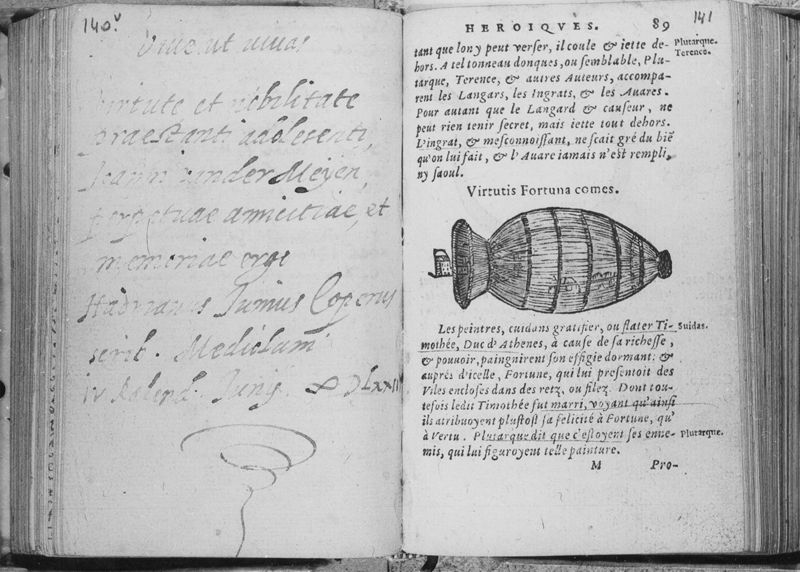 140.v
Vive ut vivas
Virtute et nobilitate
praestanti adolescenti,
Joanni vander Meyen,
perpetuae amicitiae, et
memoriae ergo
Hadrianus Junius
scrib.
IV Kalend. Junij.
141
HEROIQVES. 89
tant que lon y peut verser, il coule & iette de-
hors. A tel tonneau donques, ou semblable, Plu-
tarque, Terence, & autres Auteurs, accompa-
rent les Langars, les Ingrats, & les Auares.
Pour autant que le Langard & causeur, ne
peut rien tenir secret, mais iette tout dehors.
L'ingrat, & mesconnoissant, ne sçait gré du biē
qu'on lui fait, & l'Auare iamais n'est rempli,
ny saoul.
Plutarque.
Terence.
Virtutis Fortuna comes.
Les peintres, cuidans gratifier, ou flater Ti-
mothée, Duc d'Athenes, à cause de sa richesse,
& pouuoir, paingnirent son effigie dormant: &
auprés d'icelle, Fortune, qui lui presentoit des
Viles encloses dans des retz, ou filez. Dont tou-
tefois ledit Timothée fut marri, voyant qu'ainsi
ils atribuoyent plustost sa felicité à Fortune, qu'
à Vertu. Plutarque dit que c'estoyent ses enne-
mis, qui lui figuroyent telle painture.
Suidas.
Plutarque.
M Pro-